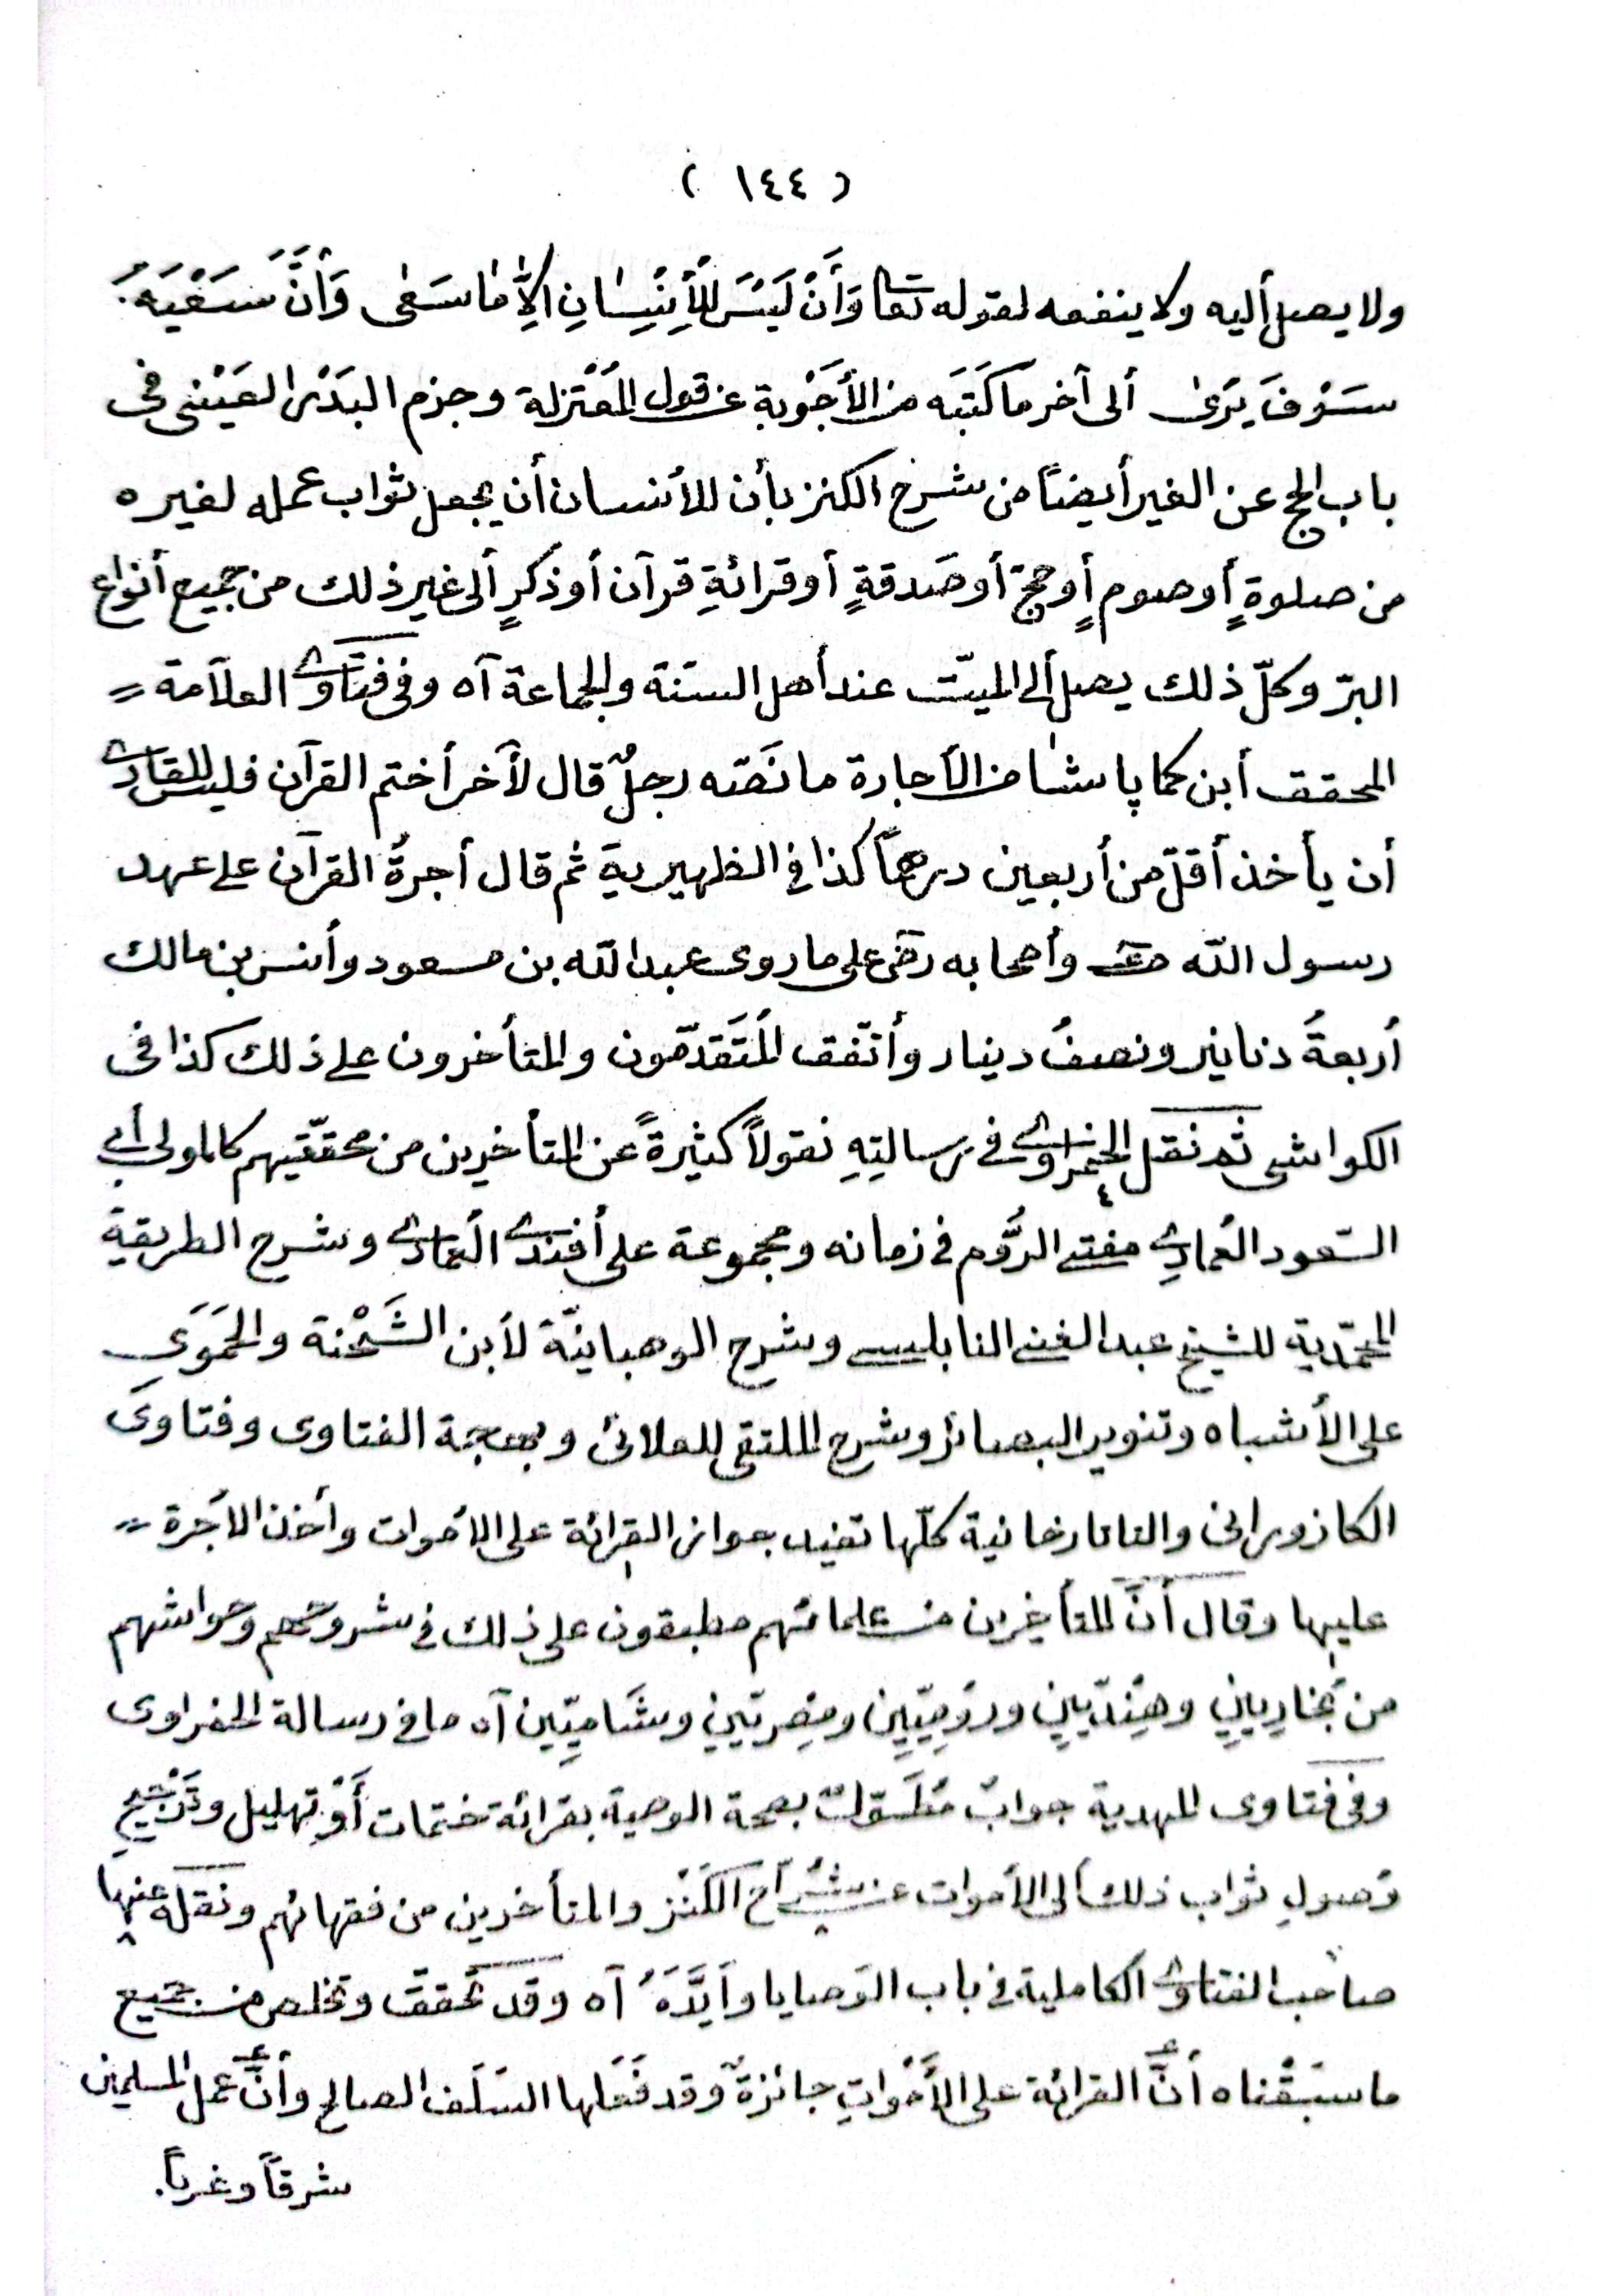 ( ١٤٤ )
ولا يصل أليه ولا ينفعه لقوله تعا وَأَنْ لَيْسَ لِلْأِنْسٰانِ اِلاَّ مٰا سَعٰى وَأَنَّ سَعْيَهُ
سَوْفَ يَرَىٰ ألى آخر ما كَتَبَه من الأَجْوِبة عن قول المُعْتزلة وجزم البَدْر العَيْنى فى
باب الحج عن الغير أيضًا من شرح الكنز بأن للأنسان أن يجعل ثواب عمله لغيره
من صلوةٍ أو صوم أو حجّ أو صَدقةٍ أو قرائةِ قرآن أو ذكرٍ ألى غير ذلك من جميع أنواع
البرّ وكلّ ذلك يصل ألى الميّت عند أهل السنّة والجماعة آه وفى فتاوى العلاّمة =
المحقق أبن كما پاشا من الأجارة ما نَصّه رجلٌ قال لآخر أختم القرآن فليس للقارى
أن يأخذ أقلّ من أربعين درهماً كذا فى الظهيرية ثم قال أجرةُ القرآن على عهد
رسول اللّه صعـ وأصحابه رضى على ما روى عبد اللّه بن مسعود وأنس بن مالك
أربعةُ دنانير ونصفُ دينار وأتّفق المُتَقدّمون والمتأخرون على ذلك كذا فى
الكواشى ثم نقل الخضراوى فى رسالتِهِ نقولاً كثيرةً عن المتأخرين من محقّقيهم كالمولى أبى
السّعود العُمادِى مفتى الرُّوم فى زمانه ومجموعة على أفندى العُمادى وشرح الطريقة
المحمّدية للشيخ عبد الغنى النابلسى وشرح الوهبانيّة لأبن الشَّحْنة والحَمَوَى
على الأشباه وتنوير البصائر وشرح الملتقى للعلائى وبهجة الفتاوى وفتاوىَ
الكازورانى والتاتارخانية كلّها تفيد جواز القرائة على الأموات وأخذ الأجرة =
عليها وقال أنَّ المتأخرين من علمائهم مطبقون على ذلك فى شروحهم وحواشهم
من بُخارِيينِ وهِنْدِيّينِ ورُومِيّينِ ومِصْريّينِ وشَامِيّينِ آه ما فى رسالة الخضراوى
وفى فتاوى المهدية جوابٌ مُطَوّلٌ بصحة الوصية بقرائة ختمات أَوْ تهليل وتَرْجيحِ
وُصولِ ثواب ذلك ألى الأموات عن شُرّاح الكَنْز والمتأخرين من فقهائهم ونقله عنها
صاحب الفتاوى الكاملية فى باب الوَصايا وأَيَّدَهُ آه وقد تحقّق وتخلص من جميع
ما سبَقْناه أنَّ القرائة على الأَمْواتِ جائزةٌ وقد فَعَلها السَلَف الصالح وأنَّ عمل المسلمين
شرقاً وغرباً.